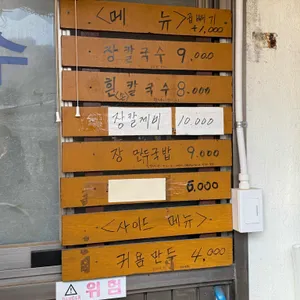 <메 뉴> 곱빼기 +1,000
장 칼국수 9.000
흰 칼국수 8.000
장칼제비 10.000
장 만두국밥 9.000
6.000
<사이드 메뉴>
귀욤만두 4.000
위험
수